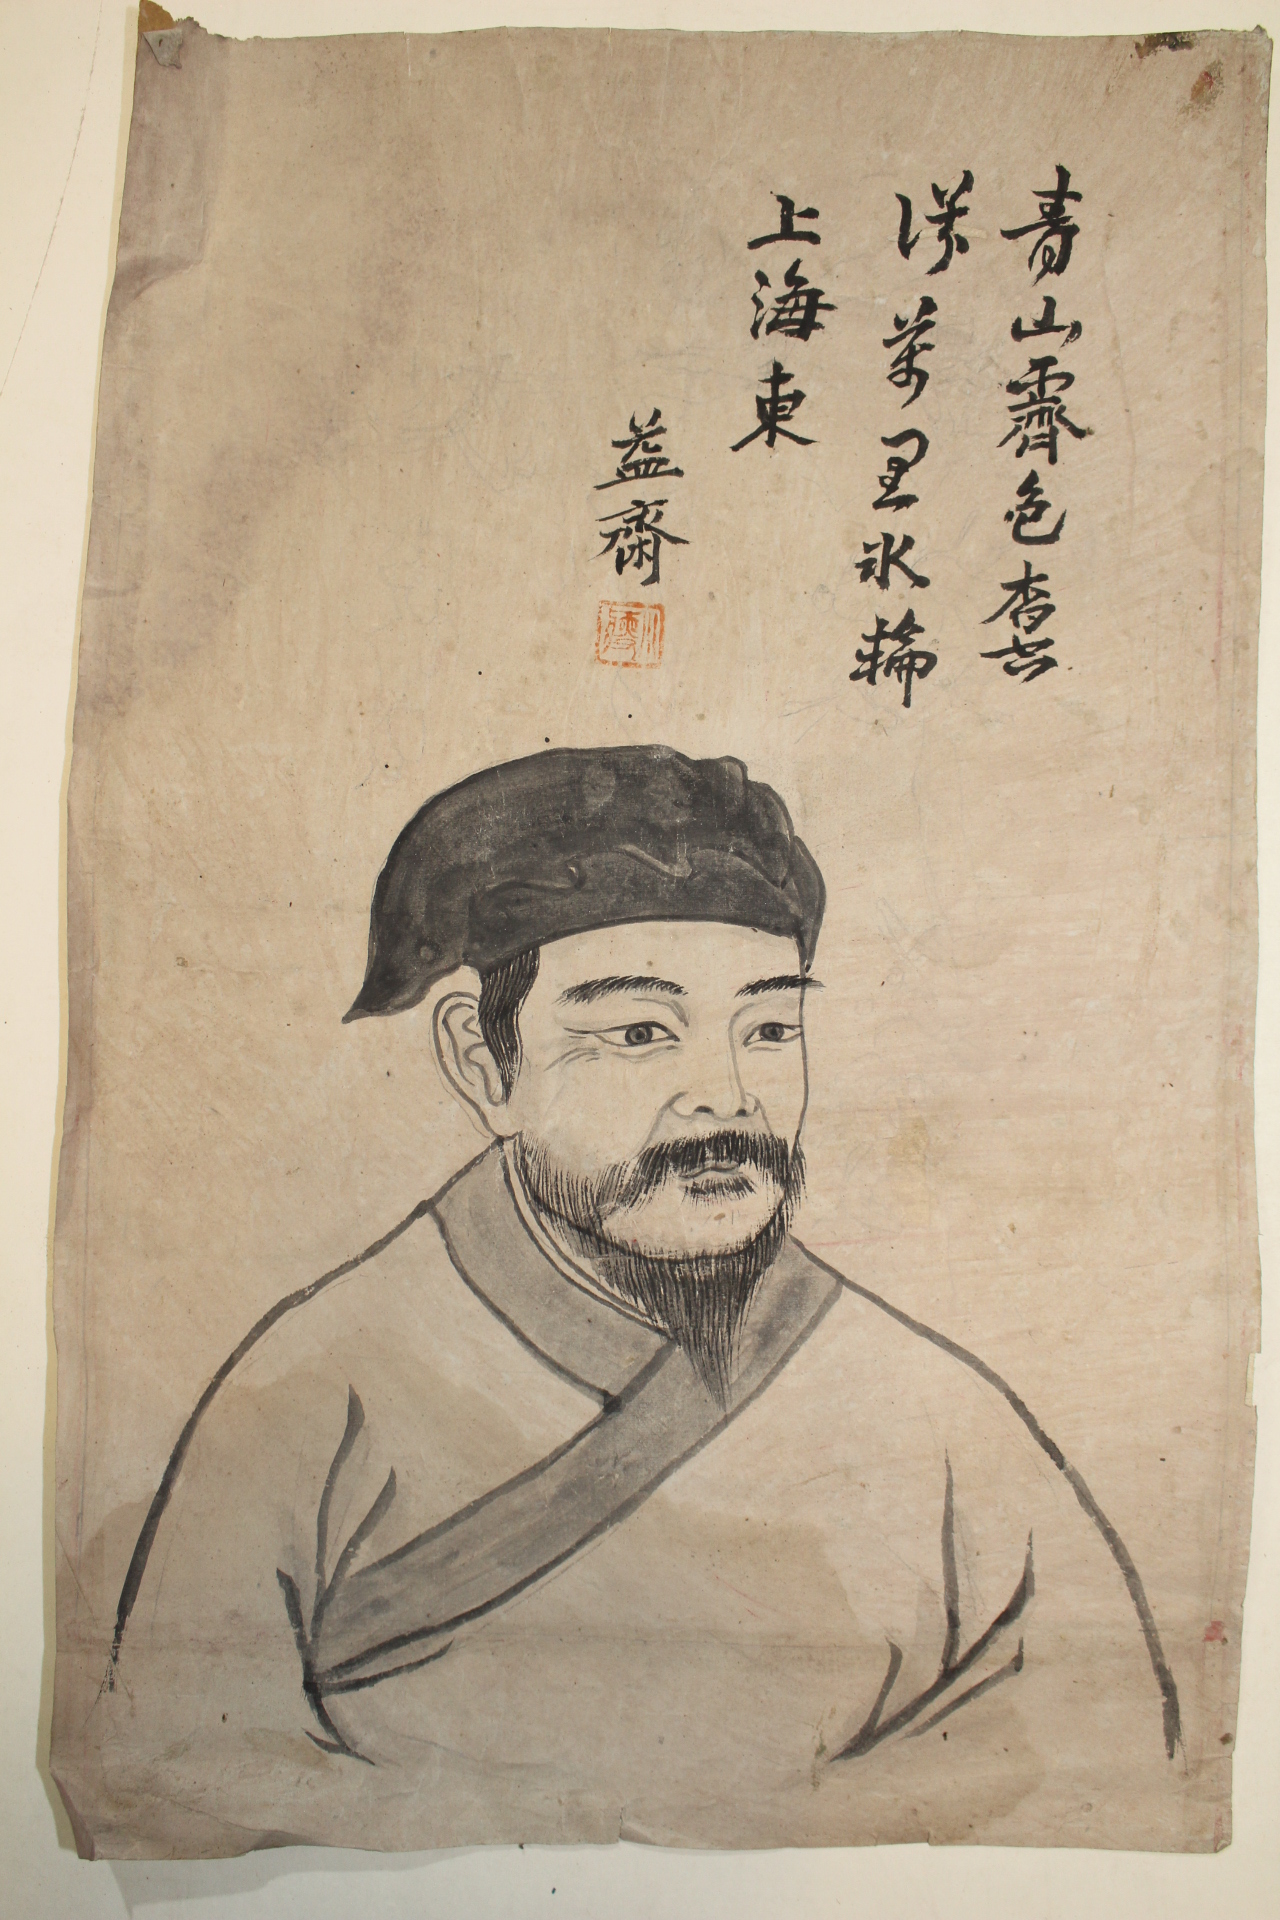 青山霽色杳
萬里氷輪
上海東
益齋